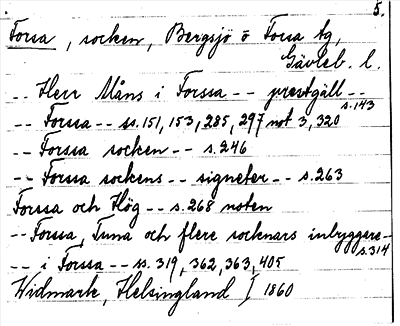 5.
Forsa, socken, Bergsjö o Forsa tg,
Gävleb. l.
-- Herr Måns i Forssa -- prestgäll --
s.143
-- Forssa -- ss.151, 153, 285, 297 not 3, 320
-- Forssa socken -- s.246
-- Forssa sockens -- signeter -- s.263
Forssa och Hög -- s.268 noten
-- Forssa, Tuna och flere socknars inbyggere --
s.314
-- i Forssa -- ss. 319, 362, 363, 405
Widmark, Helsingland I 1860